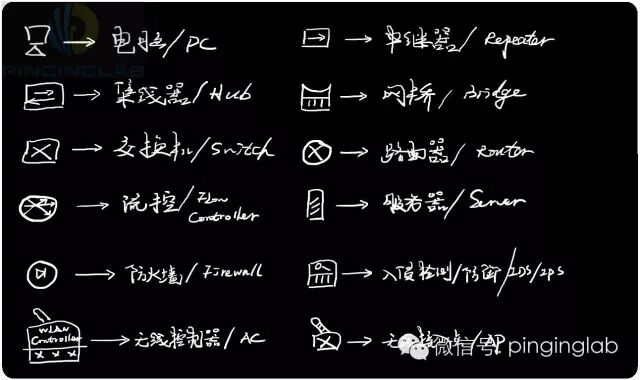 PINGINGLAB
→ 电脑/PC
→ 中继器/Repeater
→ 集线器/Hub
→ 网桥/Bridge
→ 交换机/Switch
→ 路由器/Router
→ 流控/Flow Controller
→ 服务器/Server
→ 防火墙/Firewall
→ 入侵检测/防御/IDS/IPS
WLAN Controller → 无线控制器/AC
→ 无线接入点/AP
微信号: pinginglab